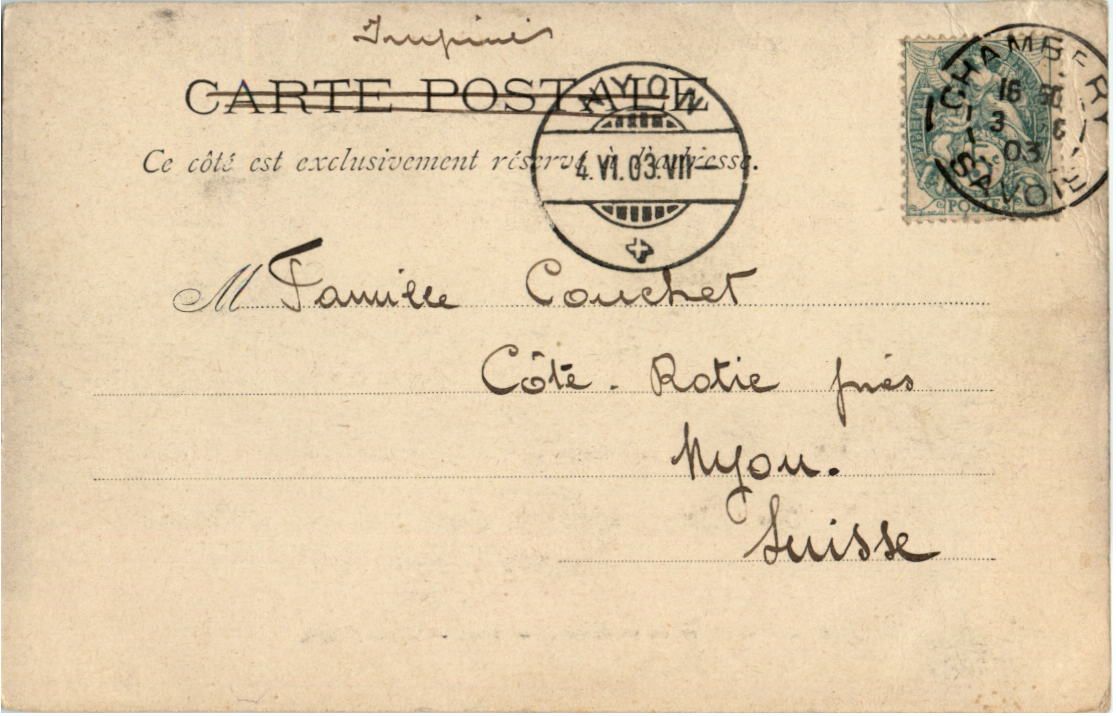 Imprimés
CARTE POSTALE
Ce côté est exclusivement réservé à l'adresse.
NYON
4.VI.03.VII—
CHAMBERY
16
3
03
SAVOIE
POSTES
M Famille Couchet
Côte-Rotie près
Nyon.
Suisse